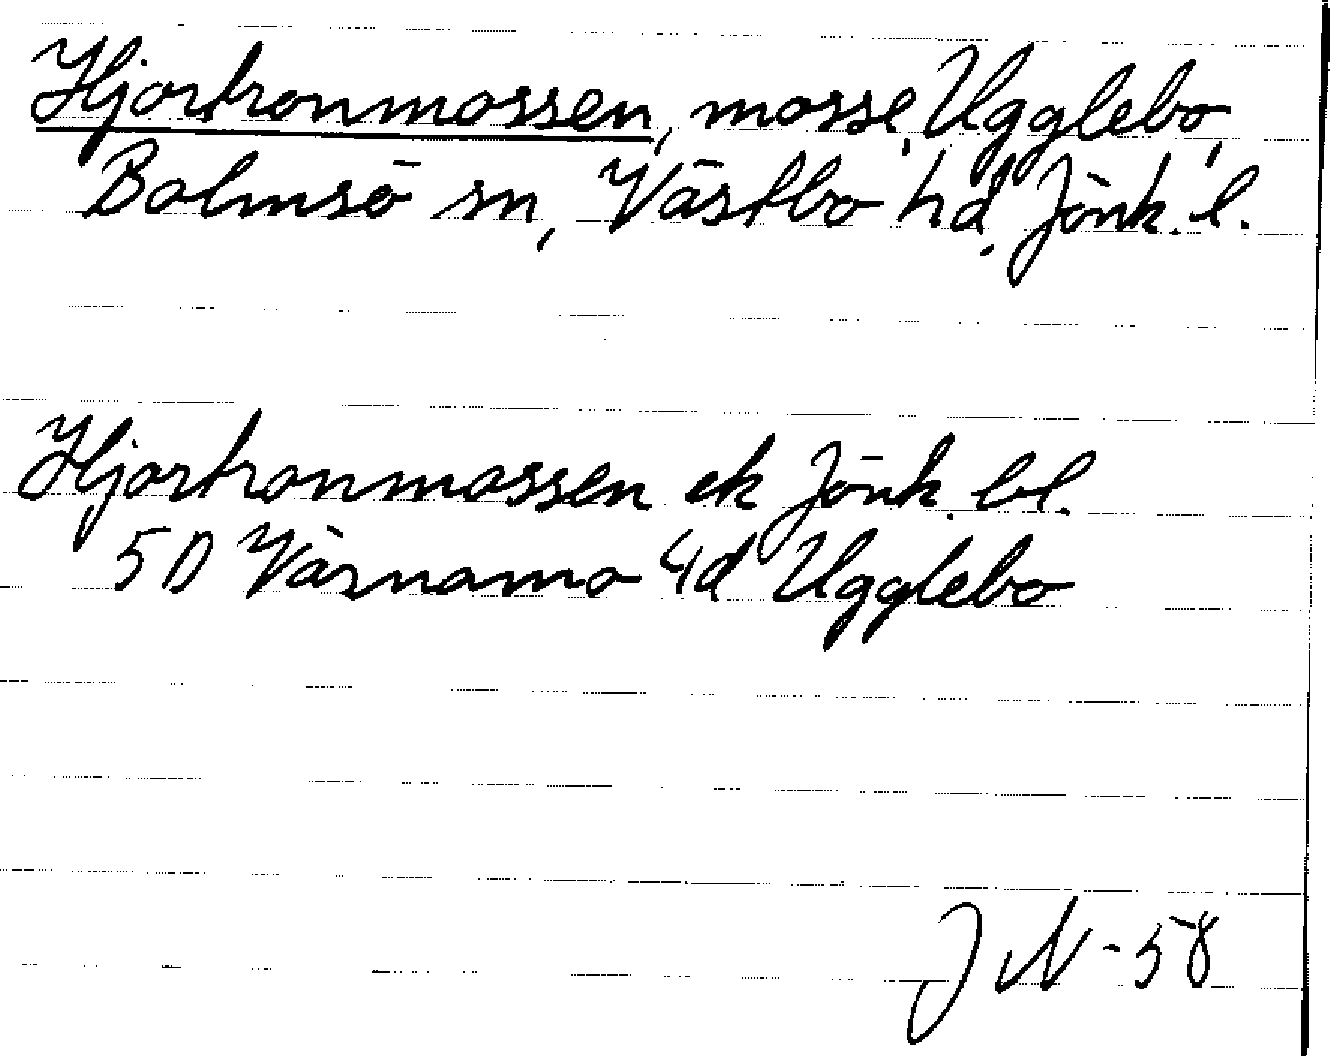 Hjortronmossen, mosse, Ugglebo,
Bolmsö sn, Västbo hd, Jönk. l.
Hjortronmossen ek Jönk. bl.
5D Värnamo 4d Ugglebo
JN-58